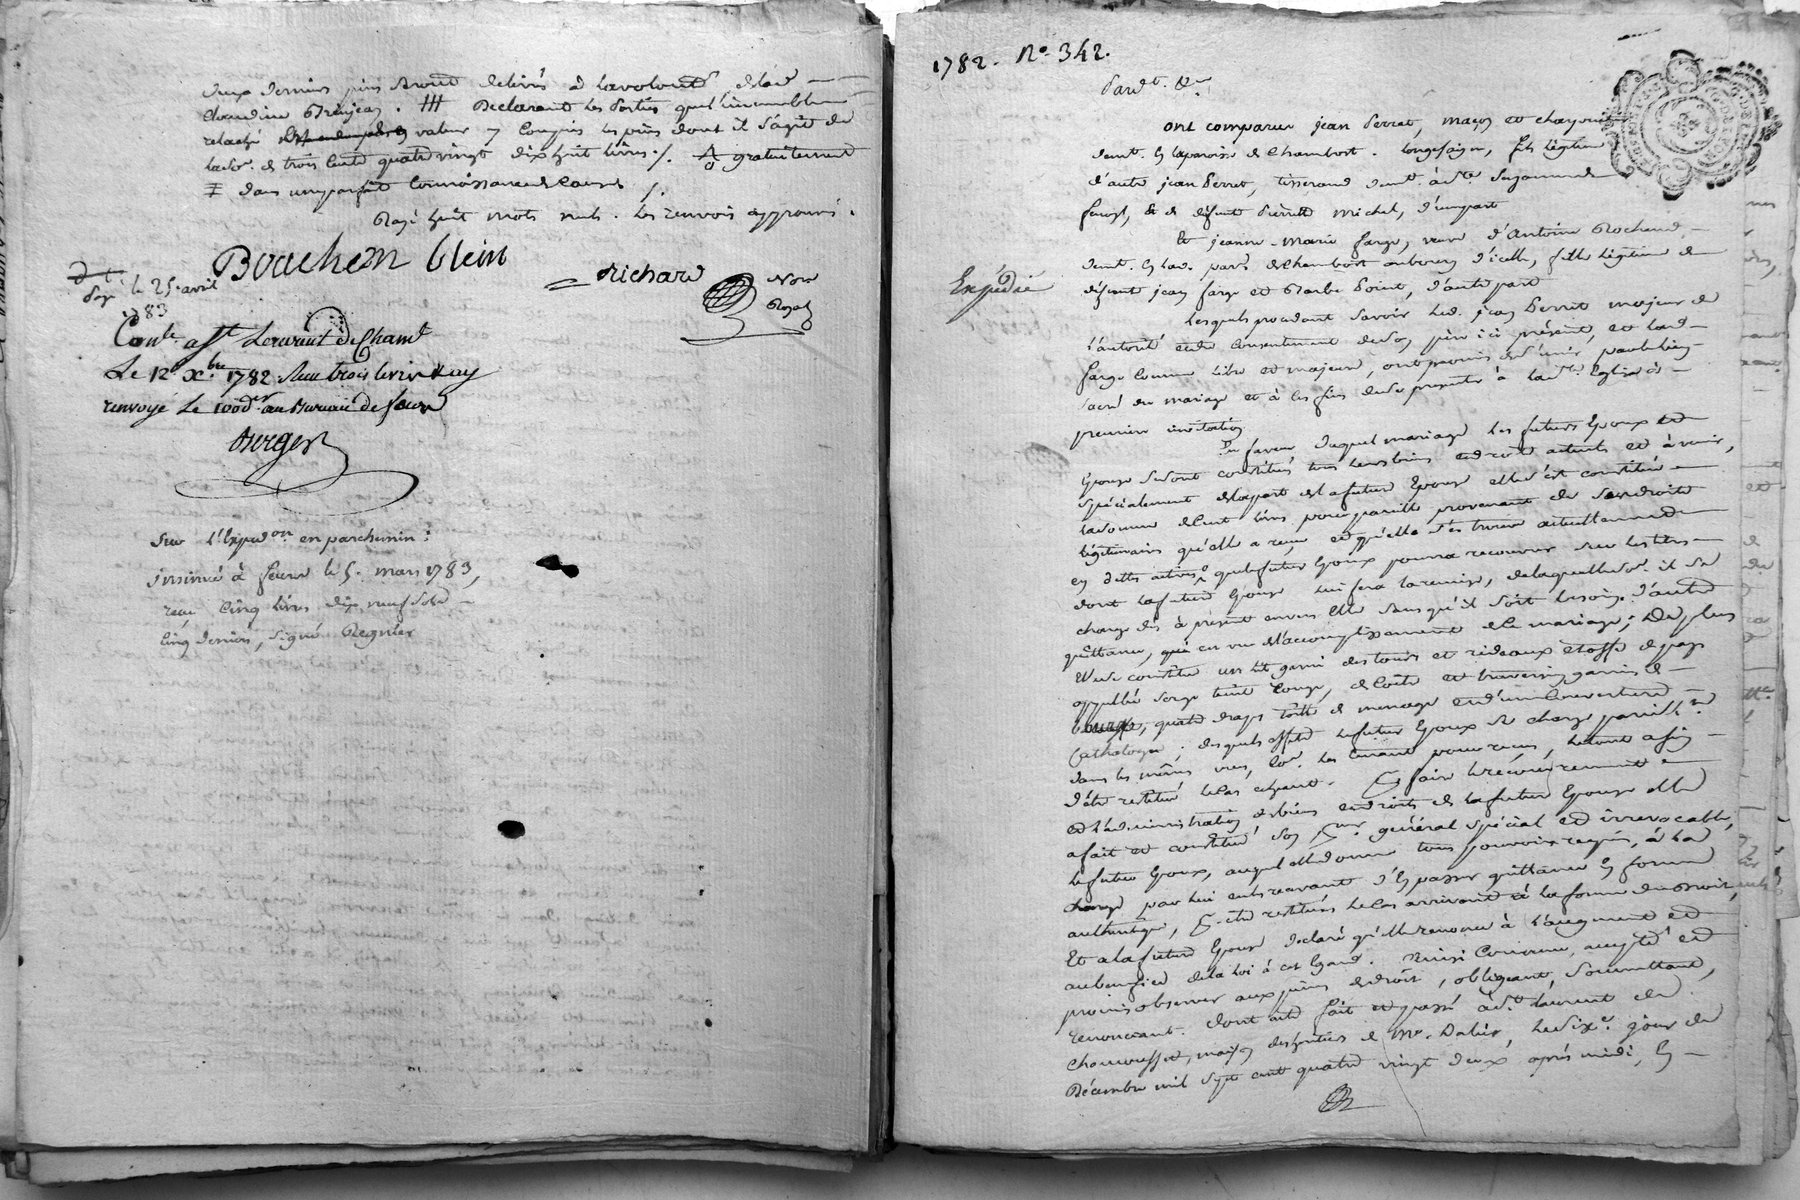 deux derniers prix seront délivrés à la volonté de lad.
Claudine Grenjean. /// Déclarant les parties quel'immeuble
relaché valeur y compris les prix dont il s'agit de
lad. de trois cent quatre vingt dix huit livres /. gratuitement
≠ dans un parfait connoissance de cause /.
Rayé huit mots nuls. les renvois approuvés.
Bouchem blein
Richard
Nore
Royal
Payé le 25. avril
1783
Conle. a St. Laurent de Cham.
Le 12 Xbre 1782. Reçu trois livres
renvoyé Le au Bureau de feurs
Burger
Sur l'Expedon. en parchemin:
insinué à feurs le 5. mars 1783,
reçu cinq livres dix neuf sols
cinq deniers, signé Regnier
1782. No. 342.
Pardt. &a.
ont comparu jean Perret, maçon et charpentier
demt. en la paroisse de Chambost. Longesaigne, fils légitime
d'autre jean Perret, tisserand demt. à Ste.
et de défunte Pierrette Michel, d'une part
Et jeanne-marie farge, veuve d'Antoine
demt. en lad. parse. de Chambost au bourg d'icelle, fille légitime de
défunt jean farge et Barbe Point, d'autre part
Expédié
Lesquels procédant savoir led. jean Perret majeur de
l'autorité et du consentement de son père ici présent, et lad.
farge comme libre et majeure, ont promis de s'unir par le lien
sacré du mariage et à ces fins de se présenter à la Ste. Eglise à
première invitation
En faveur duquel mariage les futurs Epoux et
Epouse se sont constitués tous leurs biens et droits actuels et à venir,
spécialement de la part de la future Epouse elle s'est constituée
la somme de cent livres pour pareille provenant de ses droits
légitimaires qu'elle a reçue, et qu'elle s'est trouvée actuellement
en dettes actives que le futur Epoux pourra recouvrer sur les titres
dont la future Epouse lui fera la remise, de laquelle so. il se
charge dès à présent envers elle sans qu'il soit besoin d'autre
quittance, qui en vue de l'accomplissement de ce mariage; De plus
elle se constitue un lit garni de tours et rideaux étoffe de pays
appellée serge teint rouge, de coëte et traversin garnis de
bourre, quatre draps toile de ménage et d'une couverture
Cathalogne; desquels effets le futur Epoux se charge pareillemt.
dans les mêmes vues, co. les tenant pour reçus, le tout afin
d'être restitué le cas échéant. Et faire le recouvrement
et l'administration des biens et droits de la future Epouse elle
a fait et constitué son pr. général spécial et irrévocable,
le futur Epoux, auquel elle donne tous pouvoirs requis, à la
charge par lui en recevant d'en passer quittance en forme
authentique, être restitués le cas arrivant à la forme du droit,
Et a la future Epouse déclaré qu'elle renonce à l'augment et
au bénéfice de la loi à cet égard. Ainsi convenu, accepté et
promis observer aux peines de droit, obligeant, soumettant,
renonçant. Dont acte fait et passé à St. Laurent de
Chamousset, maison des héritiers de Me. Dalier, le dixe. jour de
Décembre mil sept cent quatre vingt deux après midi, En